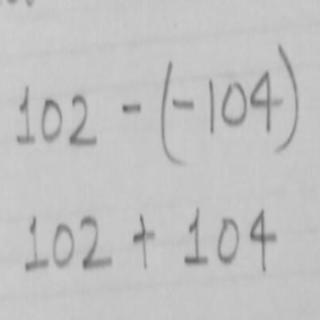 102 - (-104)
102 + 104